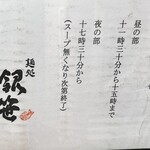 昼の部
十一時三十分から十五時まで
夜の部
十七時三十分から
(スープ無くなり次第終了)
麺処
銀笹